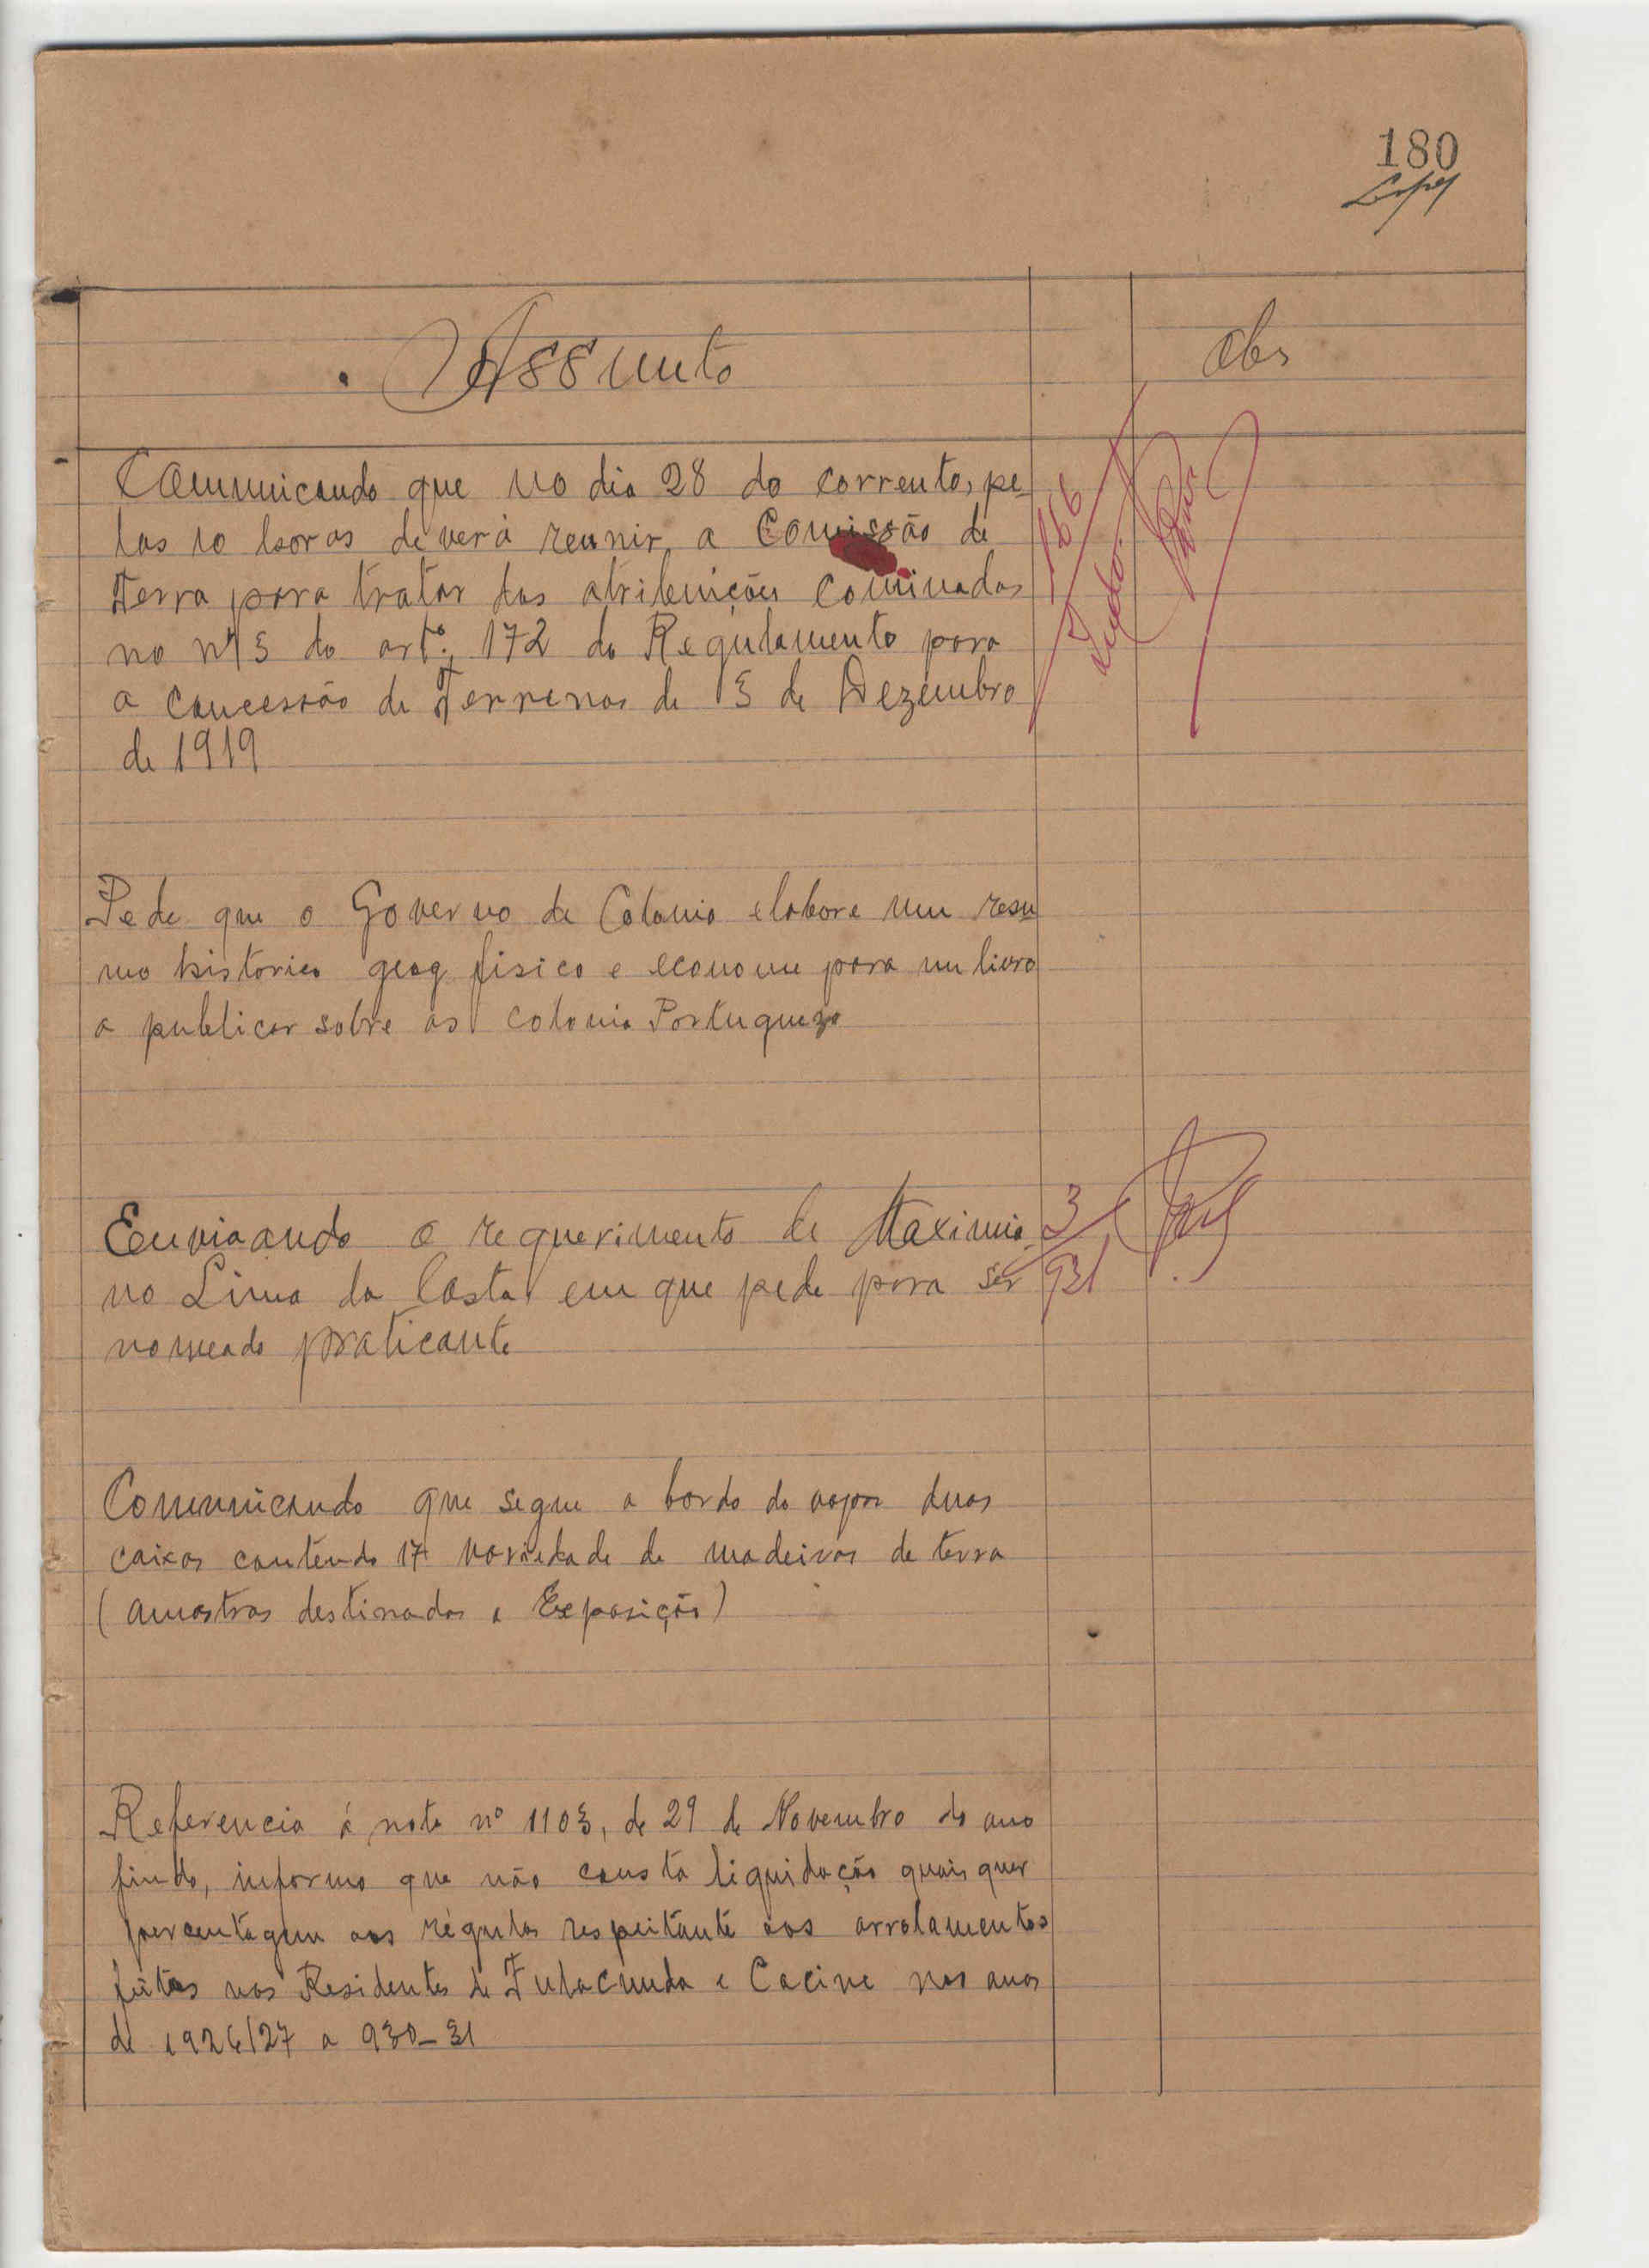 180
Assunto
Obs
Comunicando que no dia 28 do corrente, pe-
las 10 horas deverá reunir, a Comissão de
Terra para tratar das atribuições cominadas
no nº 3 do artº. 172 do Regulamento para
a concessão de Terrenos de 13 de Dezembro
de 1919
166
Pede que o Governo da Colonia elabore um resu
mo historico geog fisico e econome para um livro
a publicar sobre as colonia Portugueza
Enviaando o requerimento de Maximia
no Lima da Costa em que pede para ser
nomeado praticante
3
931
Comunicando que segue a bordo do vapor duas
caixas contendo 17 variedade de madeiras de terra
(amostras destinadas a Exposição)
Referencia á nota nº 1103, de 29 de Novembro do ano
findo, informo que não consta liquidação quaisquer
percentagem aos régulos respeitante aos arrolamentos
feitos nas Residentes de Fulacunda e Cacine nos anos
de 1926/27 a 930-31